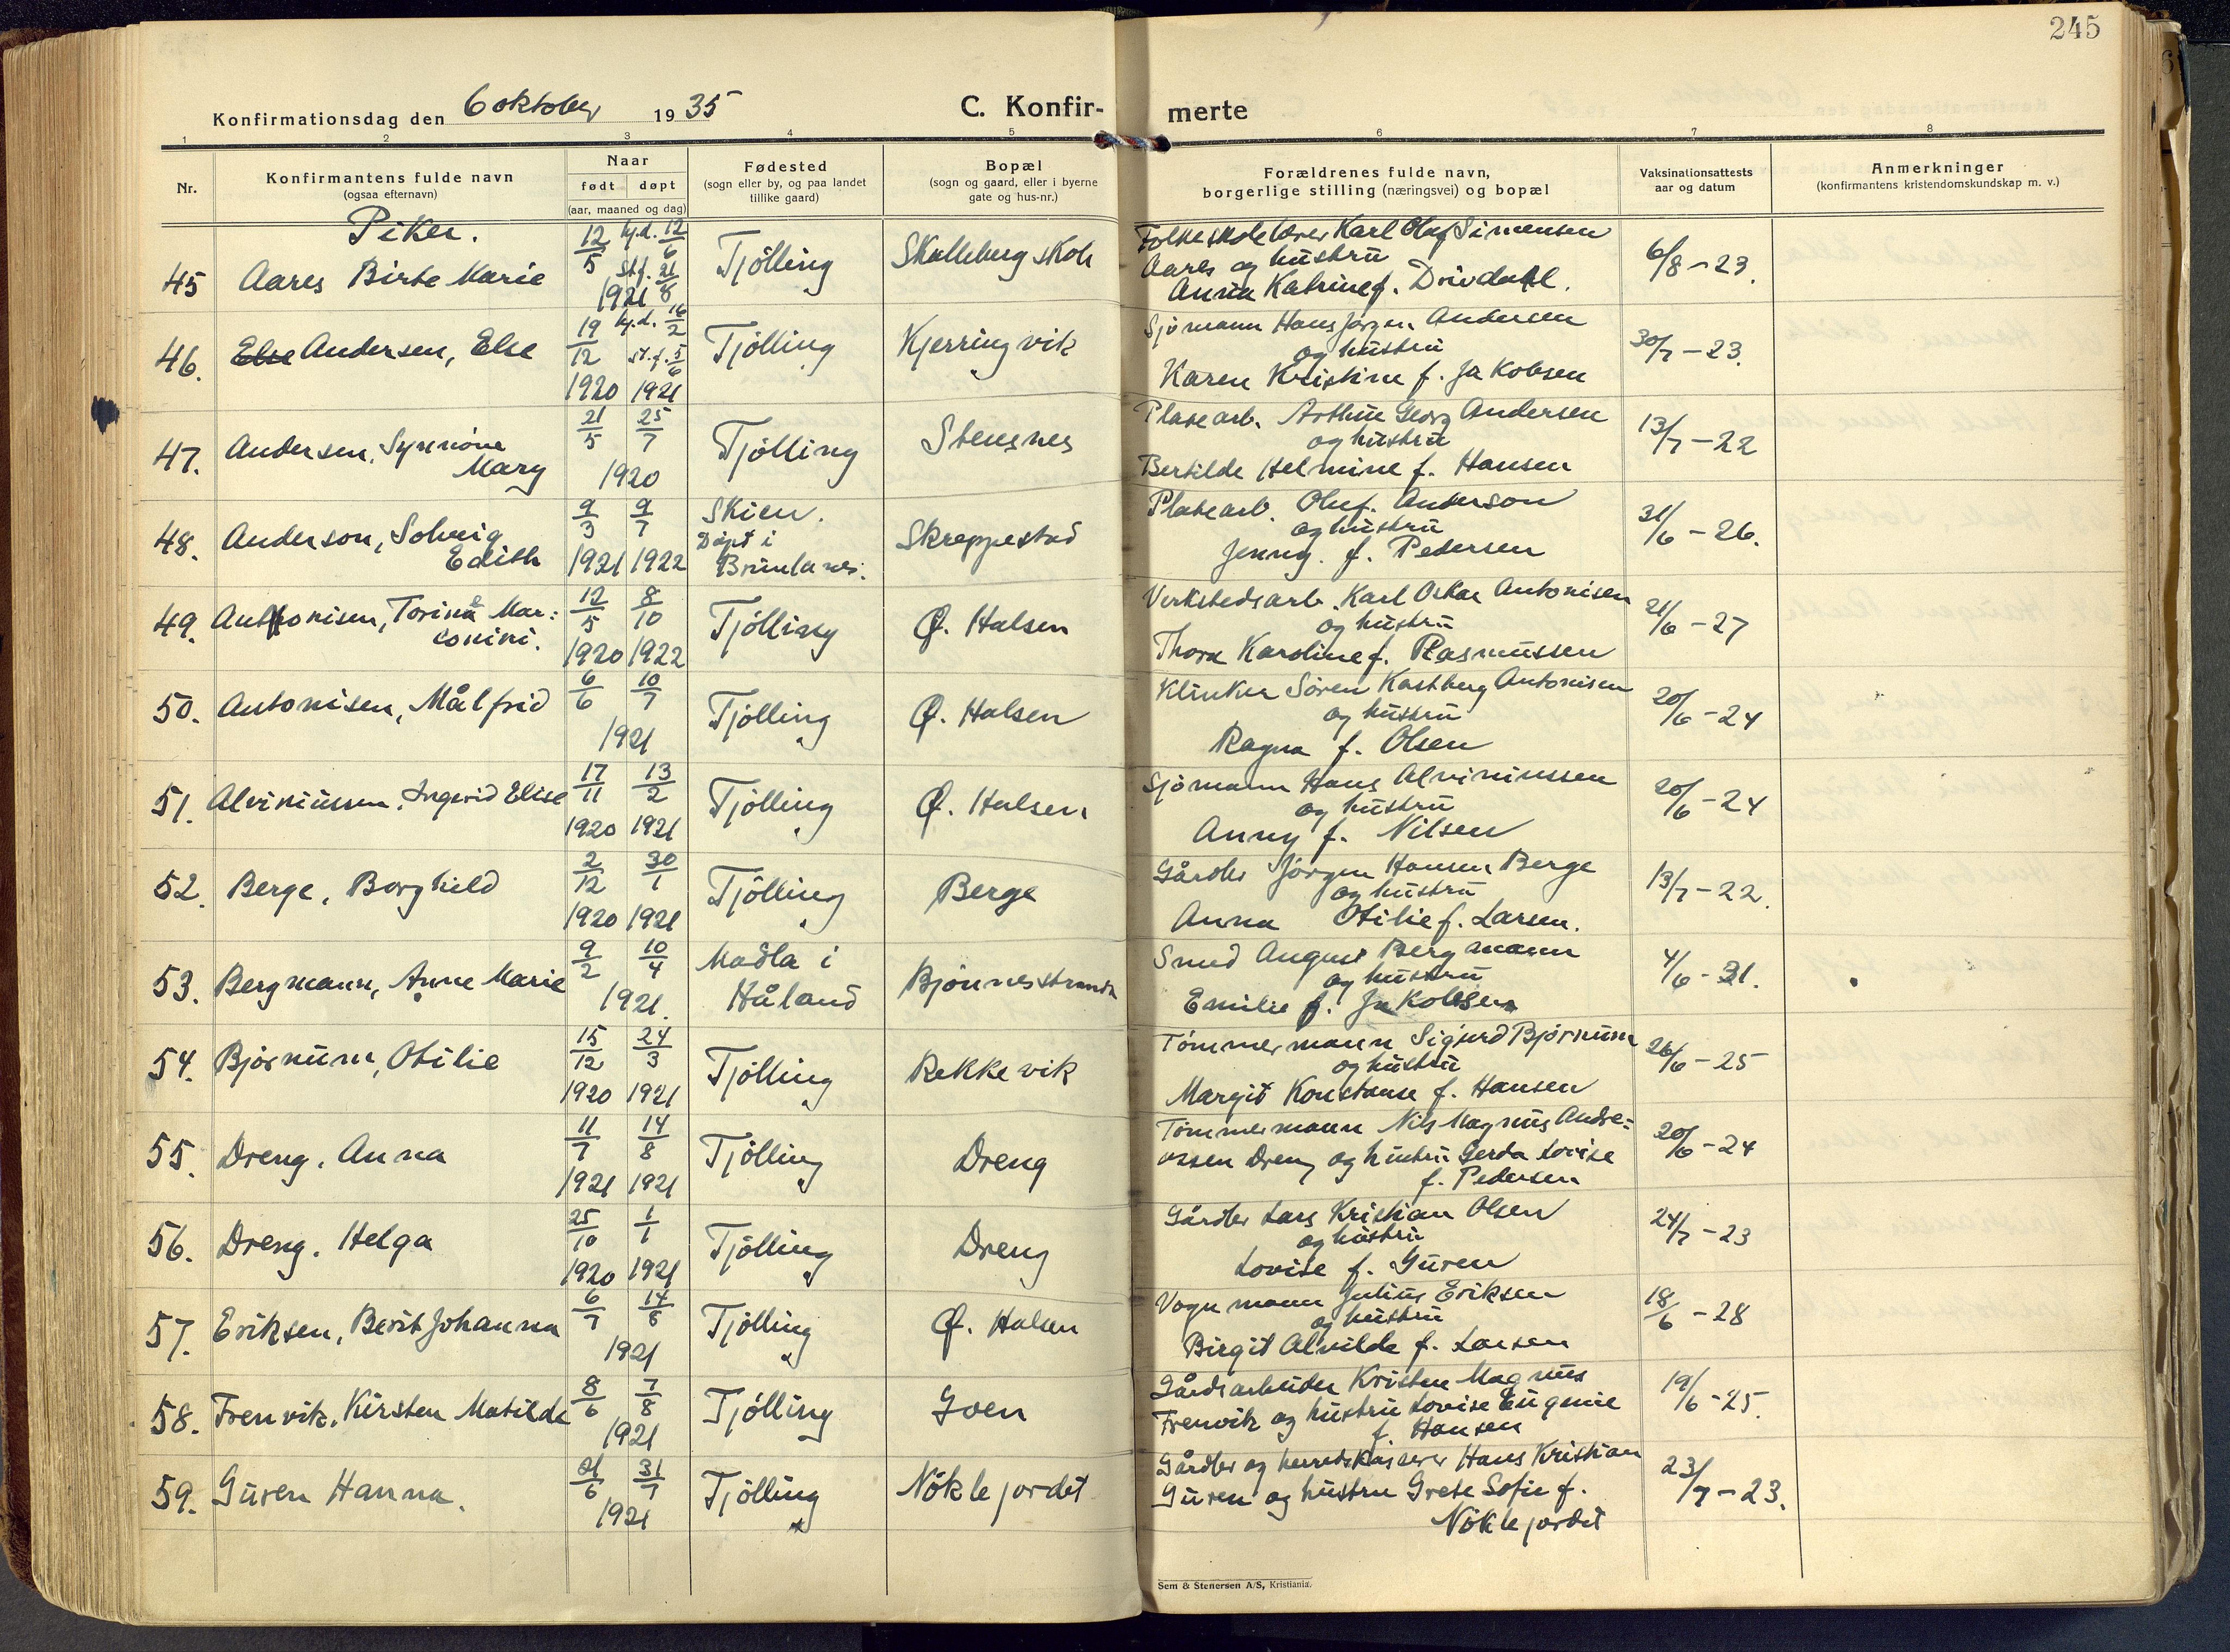 245
Konfirmationsdag den 6 oktober 1935
C. Konfir-merte
1 2 3 4 5 6 7 8
Nr.
Konfirmantens fulde navn
(ogsaa efternavn)
Naar
født døpt
(aar, maaned og dag)
Fødested
(sogn eller by, og paa landet
tillike gaard)
Bopæl
(sogn og gaard, eller i byerne
gate og hus-nr.)
Forældrenes fulde navn,
borgerlige stilling (næringsvei) og bopæl
Vaksinationsattests
aar og datum
Anmerkninger
(konfirmantens kristendomskundskap m. v.)
Piker.
45 Aares Birte Marie 12/5 hj.d. 12/6 st.f. 21/8 1921 Tjölling Skalleberg skole
Folkeskolelærer Karl Olaf Simensen
Aares og hustru
Anna Katrine f. Drivdahl.
6/8-23.
46. Else Andersen, Else 19/12 1920 hj.d. 16/2 st.f. 5/6 1921 Tjölling Kjerringvik
Sjømann Hans Jørgen Andersen
og hustru
Karen Kristine f. Jakobsen
30/7-23.
47. Andersen, Synnöve
Mary 21/5 25/7 1920 Tjölling Stensnes
Platearb. Arthur Georg Andersen
og hustru
Bertilde Helmine f. Hansen
13/7-22
48. Anderson, Solveig
Edith 9/3 1921 9/7 1922 Skien.
Döpt i
Brunlanes. Skreppestad
Platearb. Oluf Anderson
og hustru
Jenny f. Pedersen
31/6-26.
49. Antonisen, Torina Mar:
conini. 12/5 1920 8/10 1922 Tjölling Ø. Halsen
Verkstedsarb. Karl Oskar Antonisen
og hustru
Thora Karoline f. Rasmussen
21/6-27
50. Antonisen, Målfrid 6/6 10/7 1921 Tjölling Ø. Halsen
Klinker Søren Kastberg Antonisen
og hustru
Ragna f. Olsen
20/6-24
51. Alviniussen, Ingerid Elise 17/11 1920 13/2 1921 Tjölling Ø. Halsen
Sjömann Hans Alviniussen
og hustru
Anny f. Nilsen
20/6-24
52. Berge, Borghild 2/12 1920 30/1 1921 Tjölling Berge
Gårdbr Jørgen Hansen Berge
og hustru
Anna Otilie f. Larsen.
13/7-22.
53. Bergmann, Anne Marie 9/2 10/4 1921. Madla i
Håland Bjönnesstranda
Smed August Bergmann
og hustru
Emilie f. Jakobsen
4/6-31.
54. Bjørnum, Otilie 15/12 1920 24/3 1921 Tjölling Rekkevik
Tömmermann Sigurd Bjørnum
og hustru
Margit Konstanse f. Hansen
26/6-25
55. Dreng, Anna 11/7 1921 14/8 1921 Tjölling Dreng
Tömmermann Nils Magnus Andre:
assen Dreng og hustru Gerda Lovise
f. Pedersen
20/6-24
56. Dreng, Helga 25/10 1920 1/1 1921 Tjölling Dreng
Gårdbr Lars Kristian Olsen
og hustru
Lovise f. Guren
24/7-23
57. Eriksen, Berit Johanna 6/7 14/8 1921 Tjölling Ø. Halsen
Vognmann Julius Eriksen
og hustru
Birgit Alvilde f. Larsen
18/6-28
58. Frenvik, Kirsten Matilde 8/6 7/8 1921 Tjölling Goen
Gårdsarbeider Kristen Magnus
Frenvik og hustru Lovise Eugenie
f. Hansen
19/6-25.
59. Guren Hanna. 21/6 31/7 1921 Tjölling Nöklejordet
Gårdbr og herredskasserer Hans Kristian
Guren og hustru Grete Sofie f.
Nöklejordet
23/7-23.
Sem & Stenersen A/S, Kristiania.